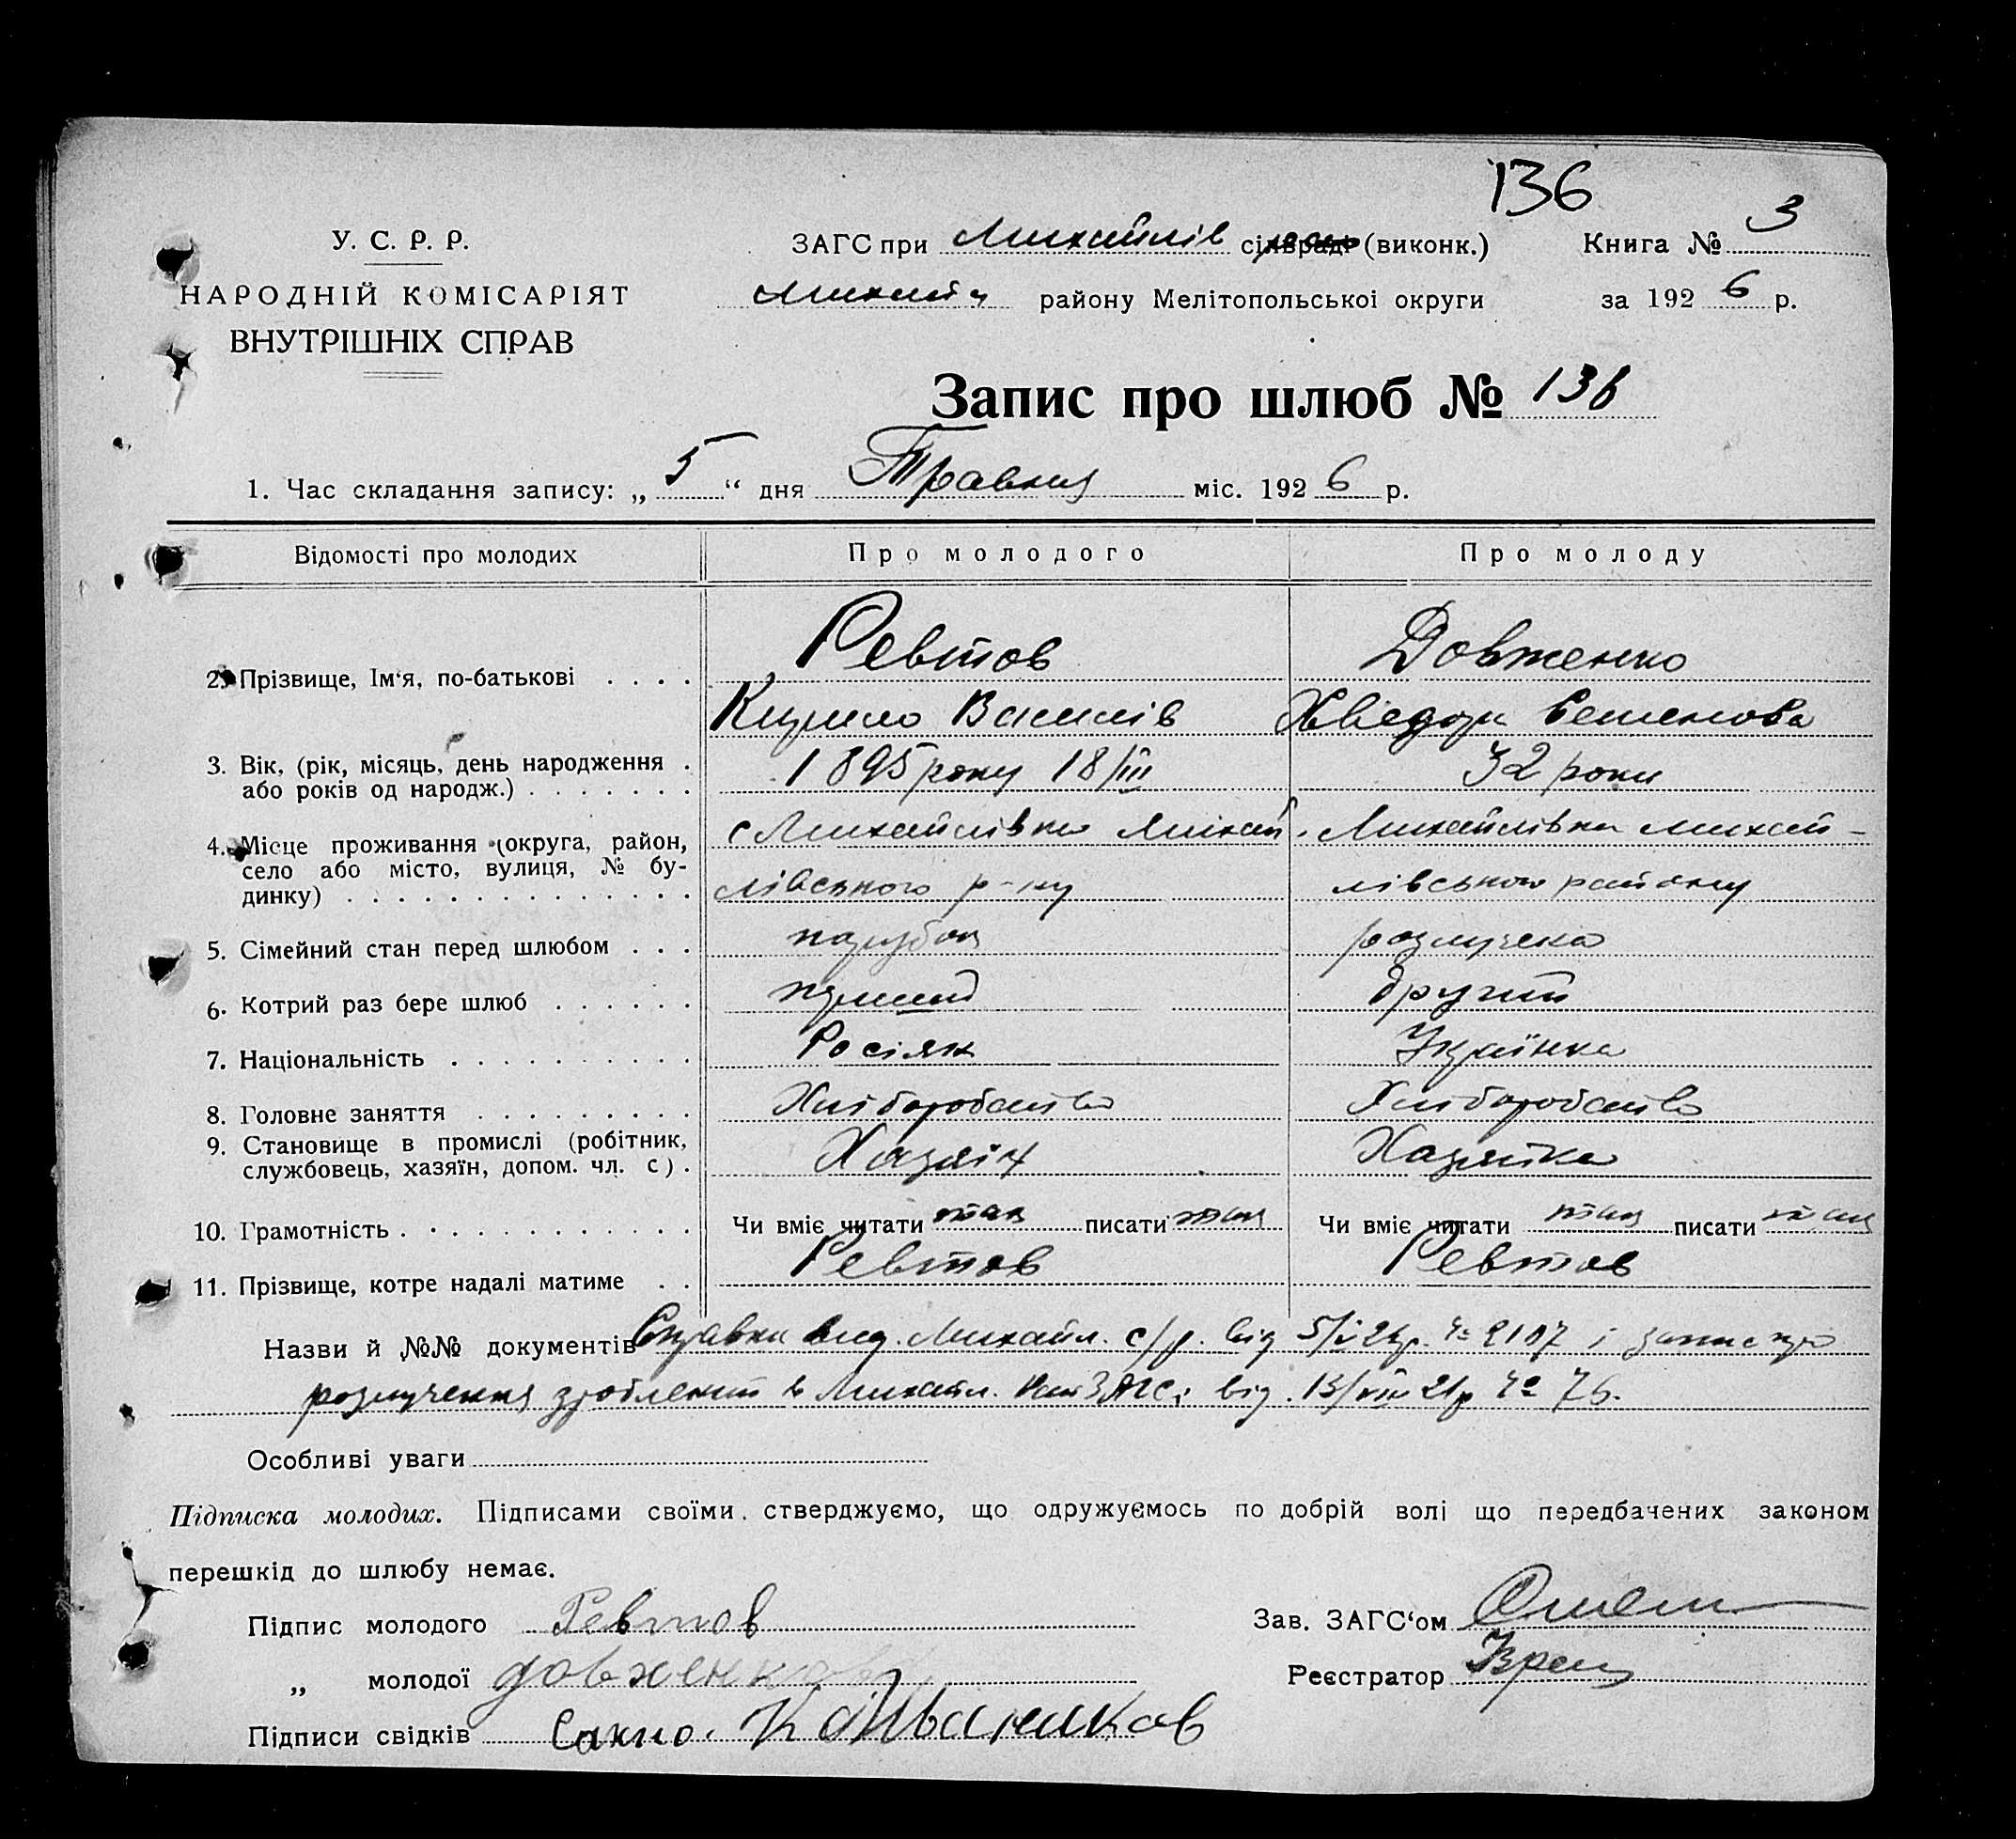 136
У. С. Р. Р.
НАРОДНІЙ КОМІСАРІЯТ
ВНУТРІШНІХ СПРАВ
ЗАГС при Михайлів сільраді (виконк.) Книга № 3
району Мелітопольської округи за 1926 р.
Запис про шлюб № 136
1. Час складання запису: „5“ дня Травня міс. 1926 р.
Відомості про молодих Про молодого Про молоду
Ревтов Довженко
2. Прізвище, Ім‘я, по-батькові
Кирило Василів Хведора Семенова
3. Вік, (рік, місяць, день народження 1895 року 18/III 32 роки
або років од народж.)
с Михайлівка Михай Михайлівка михай-
4. Місце проживання (округа, район,
село або місто, вулиця, № бу-
динку) лівського р-ну лівського району
5. Сімейний стан перед шлюбом парубок розлучена
6. Котрий раз бере шлюб перший другий
7. Національність Росіян Українка
8. Головне заняття Хліборобство Хліборобство
9. Становище в промислі (робітник, Хазяїн Хазяйка
службовець, хазяїн, допом. чл. с)
10. Грамотність Чи вміє читати так писати так Чи вміє читати так писати так
11. Прізвище, котре надалі матиме Ревтов Ревтов
Назви й №№ документів Справка вид. Михайл. с/р. від 5/V 26р. № 2107 і запис про
розлучення зроблений в Михайл. від 13/VIII 21р № 76.
Особливі уваги
Підписка молодих. Підписами своїми стверджуємо, що одружуємось по добрій волі що передбачених законом
перешкід до шлюбу немає.
Підпис молодого Ревтов Зав. ЗАГС‘ом
„ молодої довженкова Реєстратор
Підписи свідків